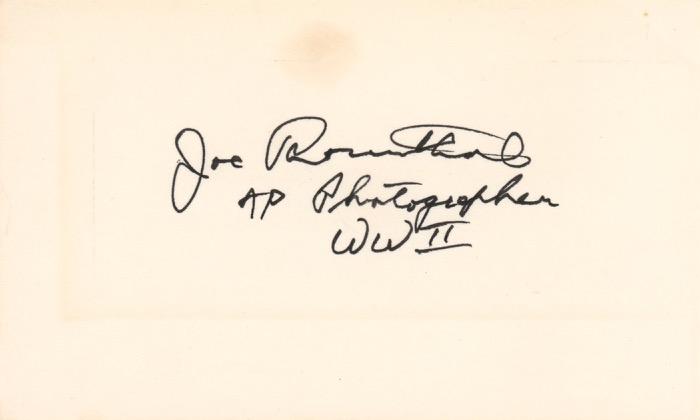 Joe Rosenthal
AP Photographer
WW II